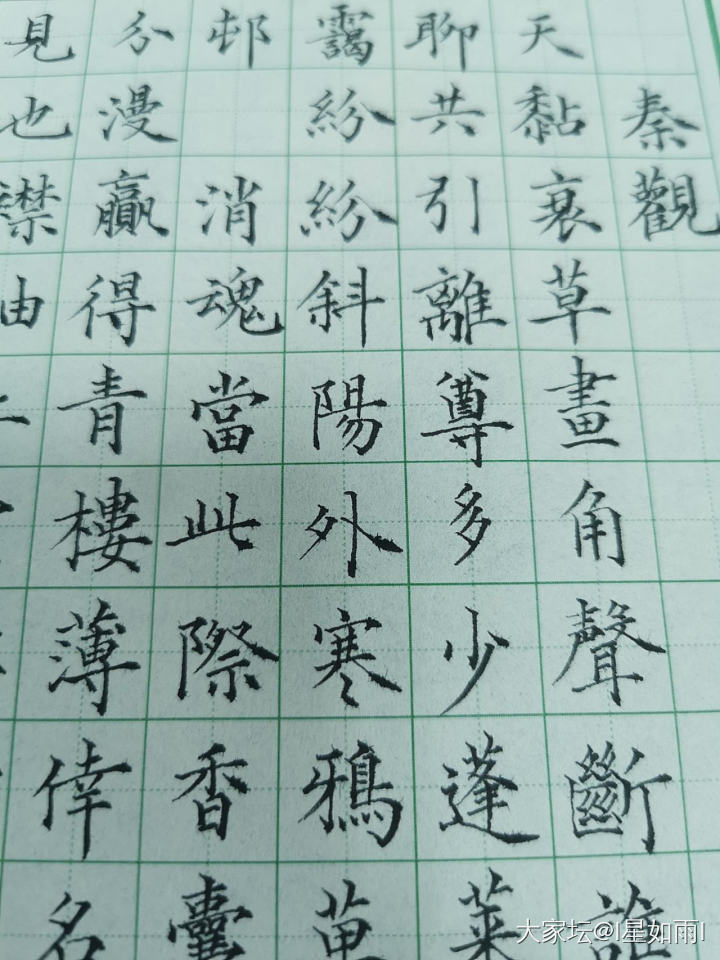 秦觀
天黏衰草畫角聲斷譙
聊共引離尊多少蓬萊
靄紛紛斜陽外寒鴉萬
邨消魂當此際香囊
分漫贏得青樓薄倖名
見也襟
大家坛@l星如雨l